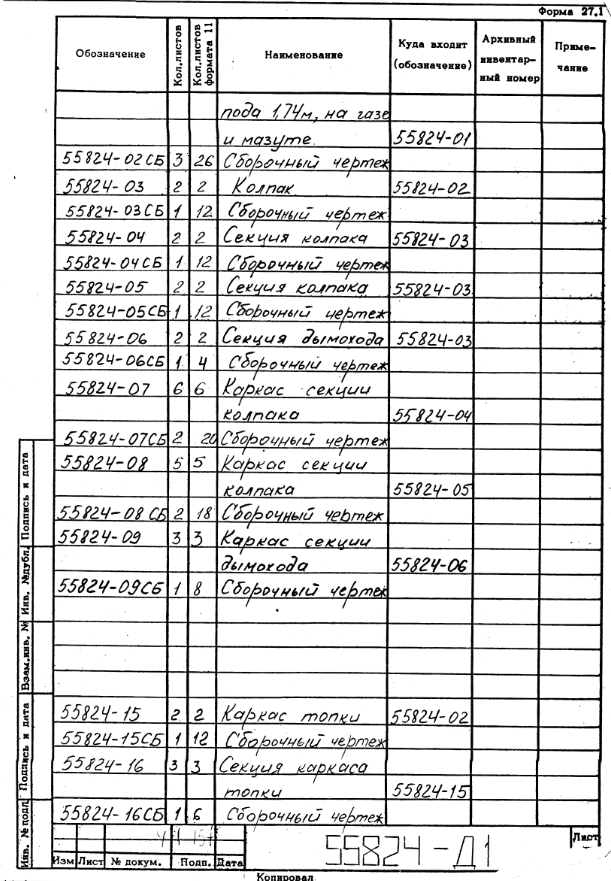 Форма 27.1
Обозначение Кол.листов Кол.листов формата 11 Наименование Куда входит (обозначение) Архивный инвентарный номер Примечание
пода 1,74м, на газе
и мазуте. 55824-01
55824-02СБ 3 26 Сборочный чертеж
55824-03 2 2 Колпак 55824-02
55824-03СБ 1 12 Сборочный чертеж
55824-04 2 2 Секция колпака 55824-03
55824-04СБ 1 12 Сборочный чертеж
55824-05 2 2 Секция колпака 55824-03
55824-05СБ 1 12 Сборочный чертеж
55824-06 2 2 Секция дымохода 55824-03
55824-06СБ 1 4 Сборочный чертеж
55824-07 6 6 Каркас секции
колпака 55824-04
55824-07СБ 2 20 Сборочный чертеж
55824-08 5 5 Каркас секции
колпака 55824-05
55824-08СБ 2 18 Сборочный чертеж
55824-09 3 3 Каркас секции
дымохода 55824-06
55824-09СБ 1 8 Сборочный чертеж
55824-15 2 2 Каркас топки 55824-02
55824-15СБ 1 12 Сборочный чертеж
55824-16 3 3 Секция каркаса
топки 55824-15
55824-16СБ 1 6 Сборочный чертеж
Инв. № подл. Подпись и дата Взам.инв. № Инв. №дубл. Подпись и дата
55824-Д1
Лист
Изм Лист № докум. Подп. Дата
Копировал